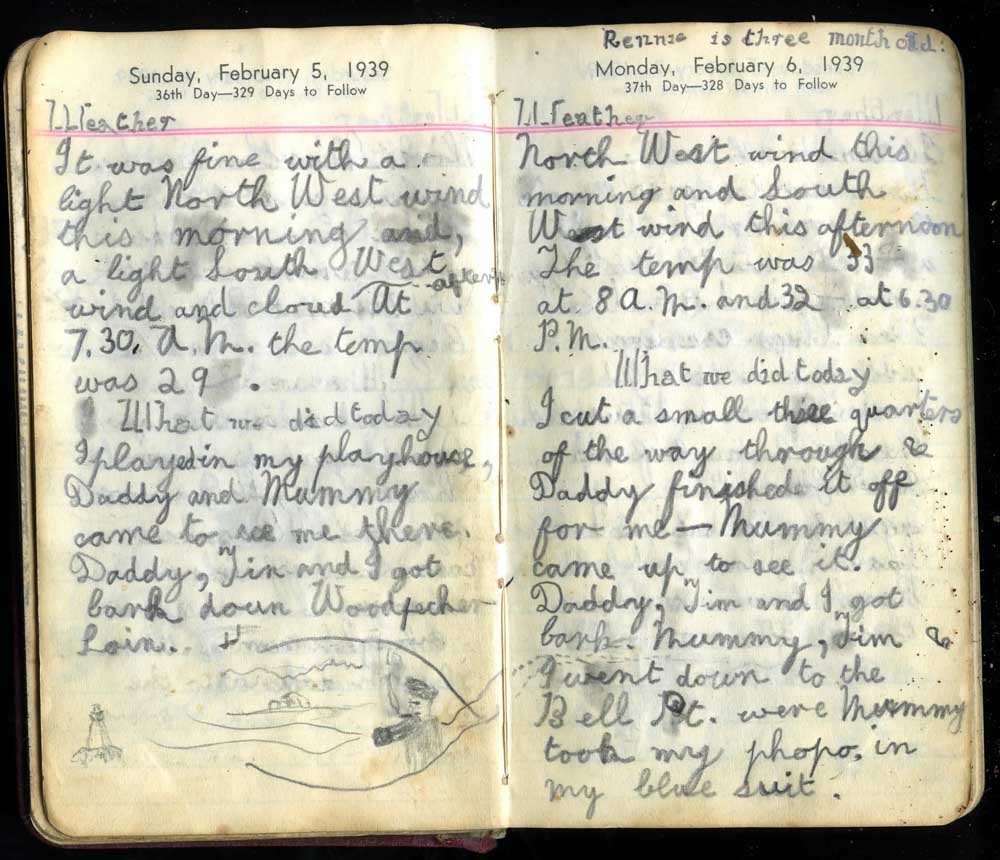 Sunday, February 5, 1939
36th Day—329 Days to Follow
Weather
It was fine with a
light North West wind
this morning and,
a light South West
wind and cloud aftern At
7.30. A.M. the temp
was 29 .
What we did today
I played in my playhouse,
Daddy and Mummy
came to see me there.
Daddy, Jim and I got
bark down Woodpecher
Loin.
Rennie is three month old.
Monday, February 6, 1939
37th Day—328 Days to Follow
Weather
North West wind this
morning and South
West wind this afternoon
The temp was 33
at 8 A.M. and 32 at 6.30
P.M.
What we did today
I cut a small three quarters
of the way through &
Daddy finished it off
for me — Mummy
came up to see it.
Daddy, Jim and I got
bark. Mummy, Jim &
I went down to the
Bell Pt. were Mummy
took my phopo, in
my blue suit.